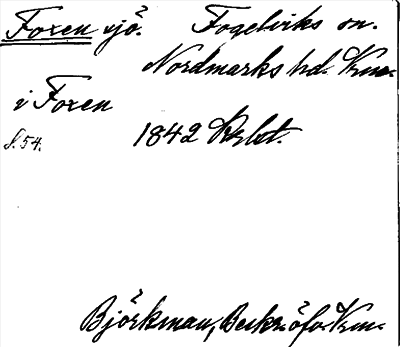 Foxen sjö. Fogelviks sn.
Nordmarks hd. Vrm.
i Foxen
S. 54. 1842
Björkman, Beskr. öfv. Vrm.